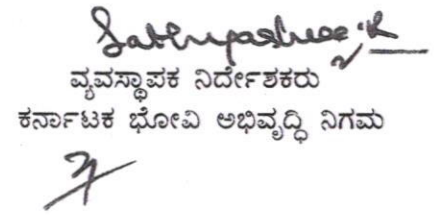 Sathyashree. K
ವ್ಯವಸ್ಥಾಪಕ ನಿರ್ದೇಶಕರು
ಕರ್ನಾಟಕ ಭೋವಿ ಅಭಿವೃದ್ಧಿ ನಿಗಮ